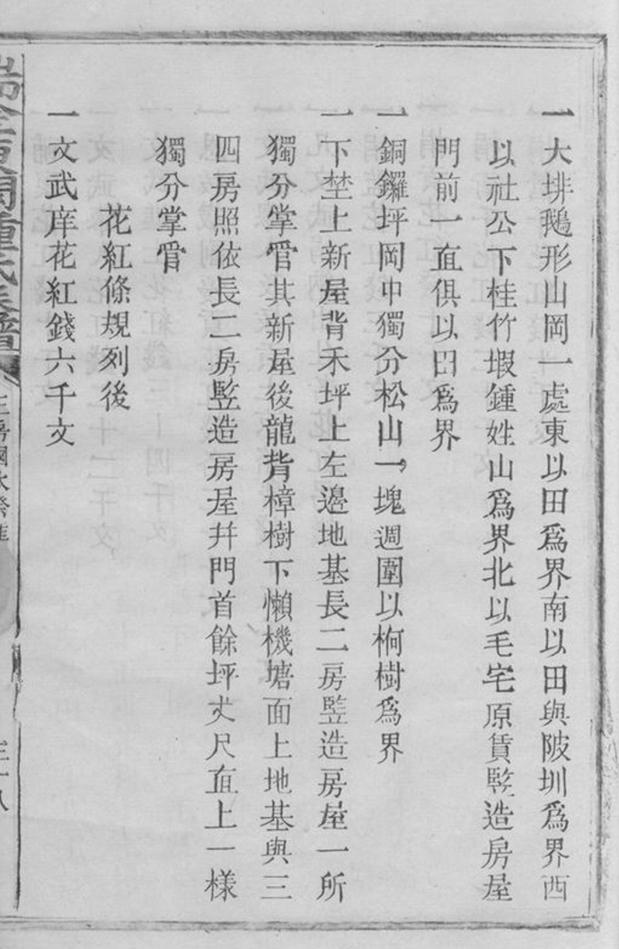 一大排鵝形山岡一處東以田爲界南以田與陂圳爲界西
以社公下桂竹塅鍾姓山爲界北以毛宅原賃竪造房屋
門前一直俱以田爲界
一銅鑼坪岡中獨分松山一塊週圍以桐樹爲界
一下埜上新屋背禾坪上左邊地基長二房竪造房屋一所
獨分掌管其新屋後龍背樟樹下懶機塘面上地基與三
四房照依長二房竪造房屋幷門首餘坪丈尺直上一樣
獨分掌管
花紅條規列後
一文武庠花紅錢六千文